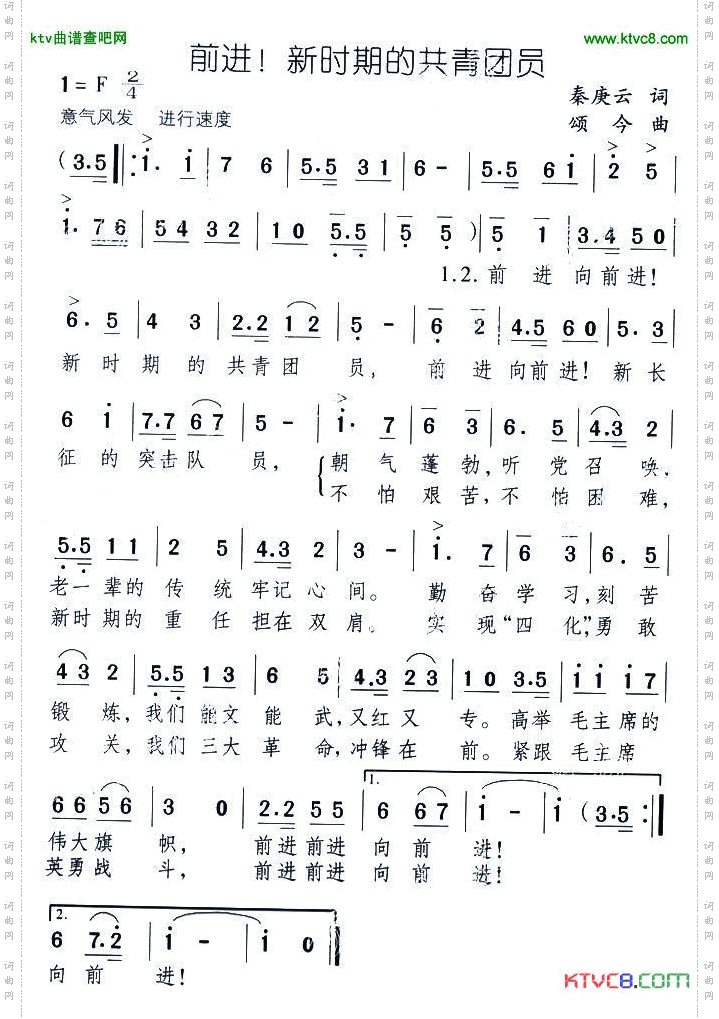 ktv曲谱查吧网
www.ktvc8.com
前进！新时期的共青团员
1=F 2/4
秦庚云 词
意气风发 进行速度
颂今 曲
(3.5 |: 1. 1 | 7 6 | 5.5 3 1 | 6 - | 5.5 6 1 | 2 5 |
1. 7 6 | 5 4 3 2 | 1 0 5.5 | 5 5 ) | 5 1 | 3.4 5 0 |
1.2.前 进 向前进！
6. 5 | 4 3 | 2.2 1 2 | 5 - | 6 2 | 4.5 6 0 | 5. 3 |
新 时 期 的 共青团 员， 前 进 向前进！新 长
6 1 | 7.7 6 7 | 5 - | 1. 7 | 6 3 | 6. 5 | 4.3 2 |
征 的 突击队 员， 朝 气 蓬 勃，听 党 召 唤，
不 怕 艰 苦，不 怕 困 难，
5.5 1 1 | 2 5 | 4.3 2 | 3 - | 1. 7 | 6 3 | 6. 5 |
老一辈的 传 统 牢记心 间。 勤 奋 学 习，刻 苦
新时期的 重 任 担在双 肩。 实 现“四 化”，勇 敢
4 3 2 | 5.5 1 3 | 6 5 | 4.3 2 3 | 1 0 3.5 | 1 1 1 7 |
锻 炼，我们 能文 能 武，又红 又 专。高举 毛主席的
攻 关，我们 三大 革 命，冲锋 在 前。紧跟 毛主席
6 6 5 6 | 3 0 | 2.2 5 5 | 6 6 7 | 1 - | 1 (3.5 :|
1.
伟大旗 帜， 前进前进 向前 进！
英勇战 斗， 前进前进 向前 进！
2.
6 7.2 | 1 - | 1 0 ‖
向 前 进！
KTVC8.com
词曲网